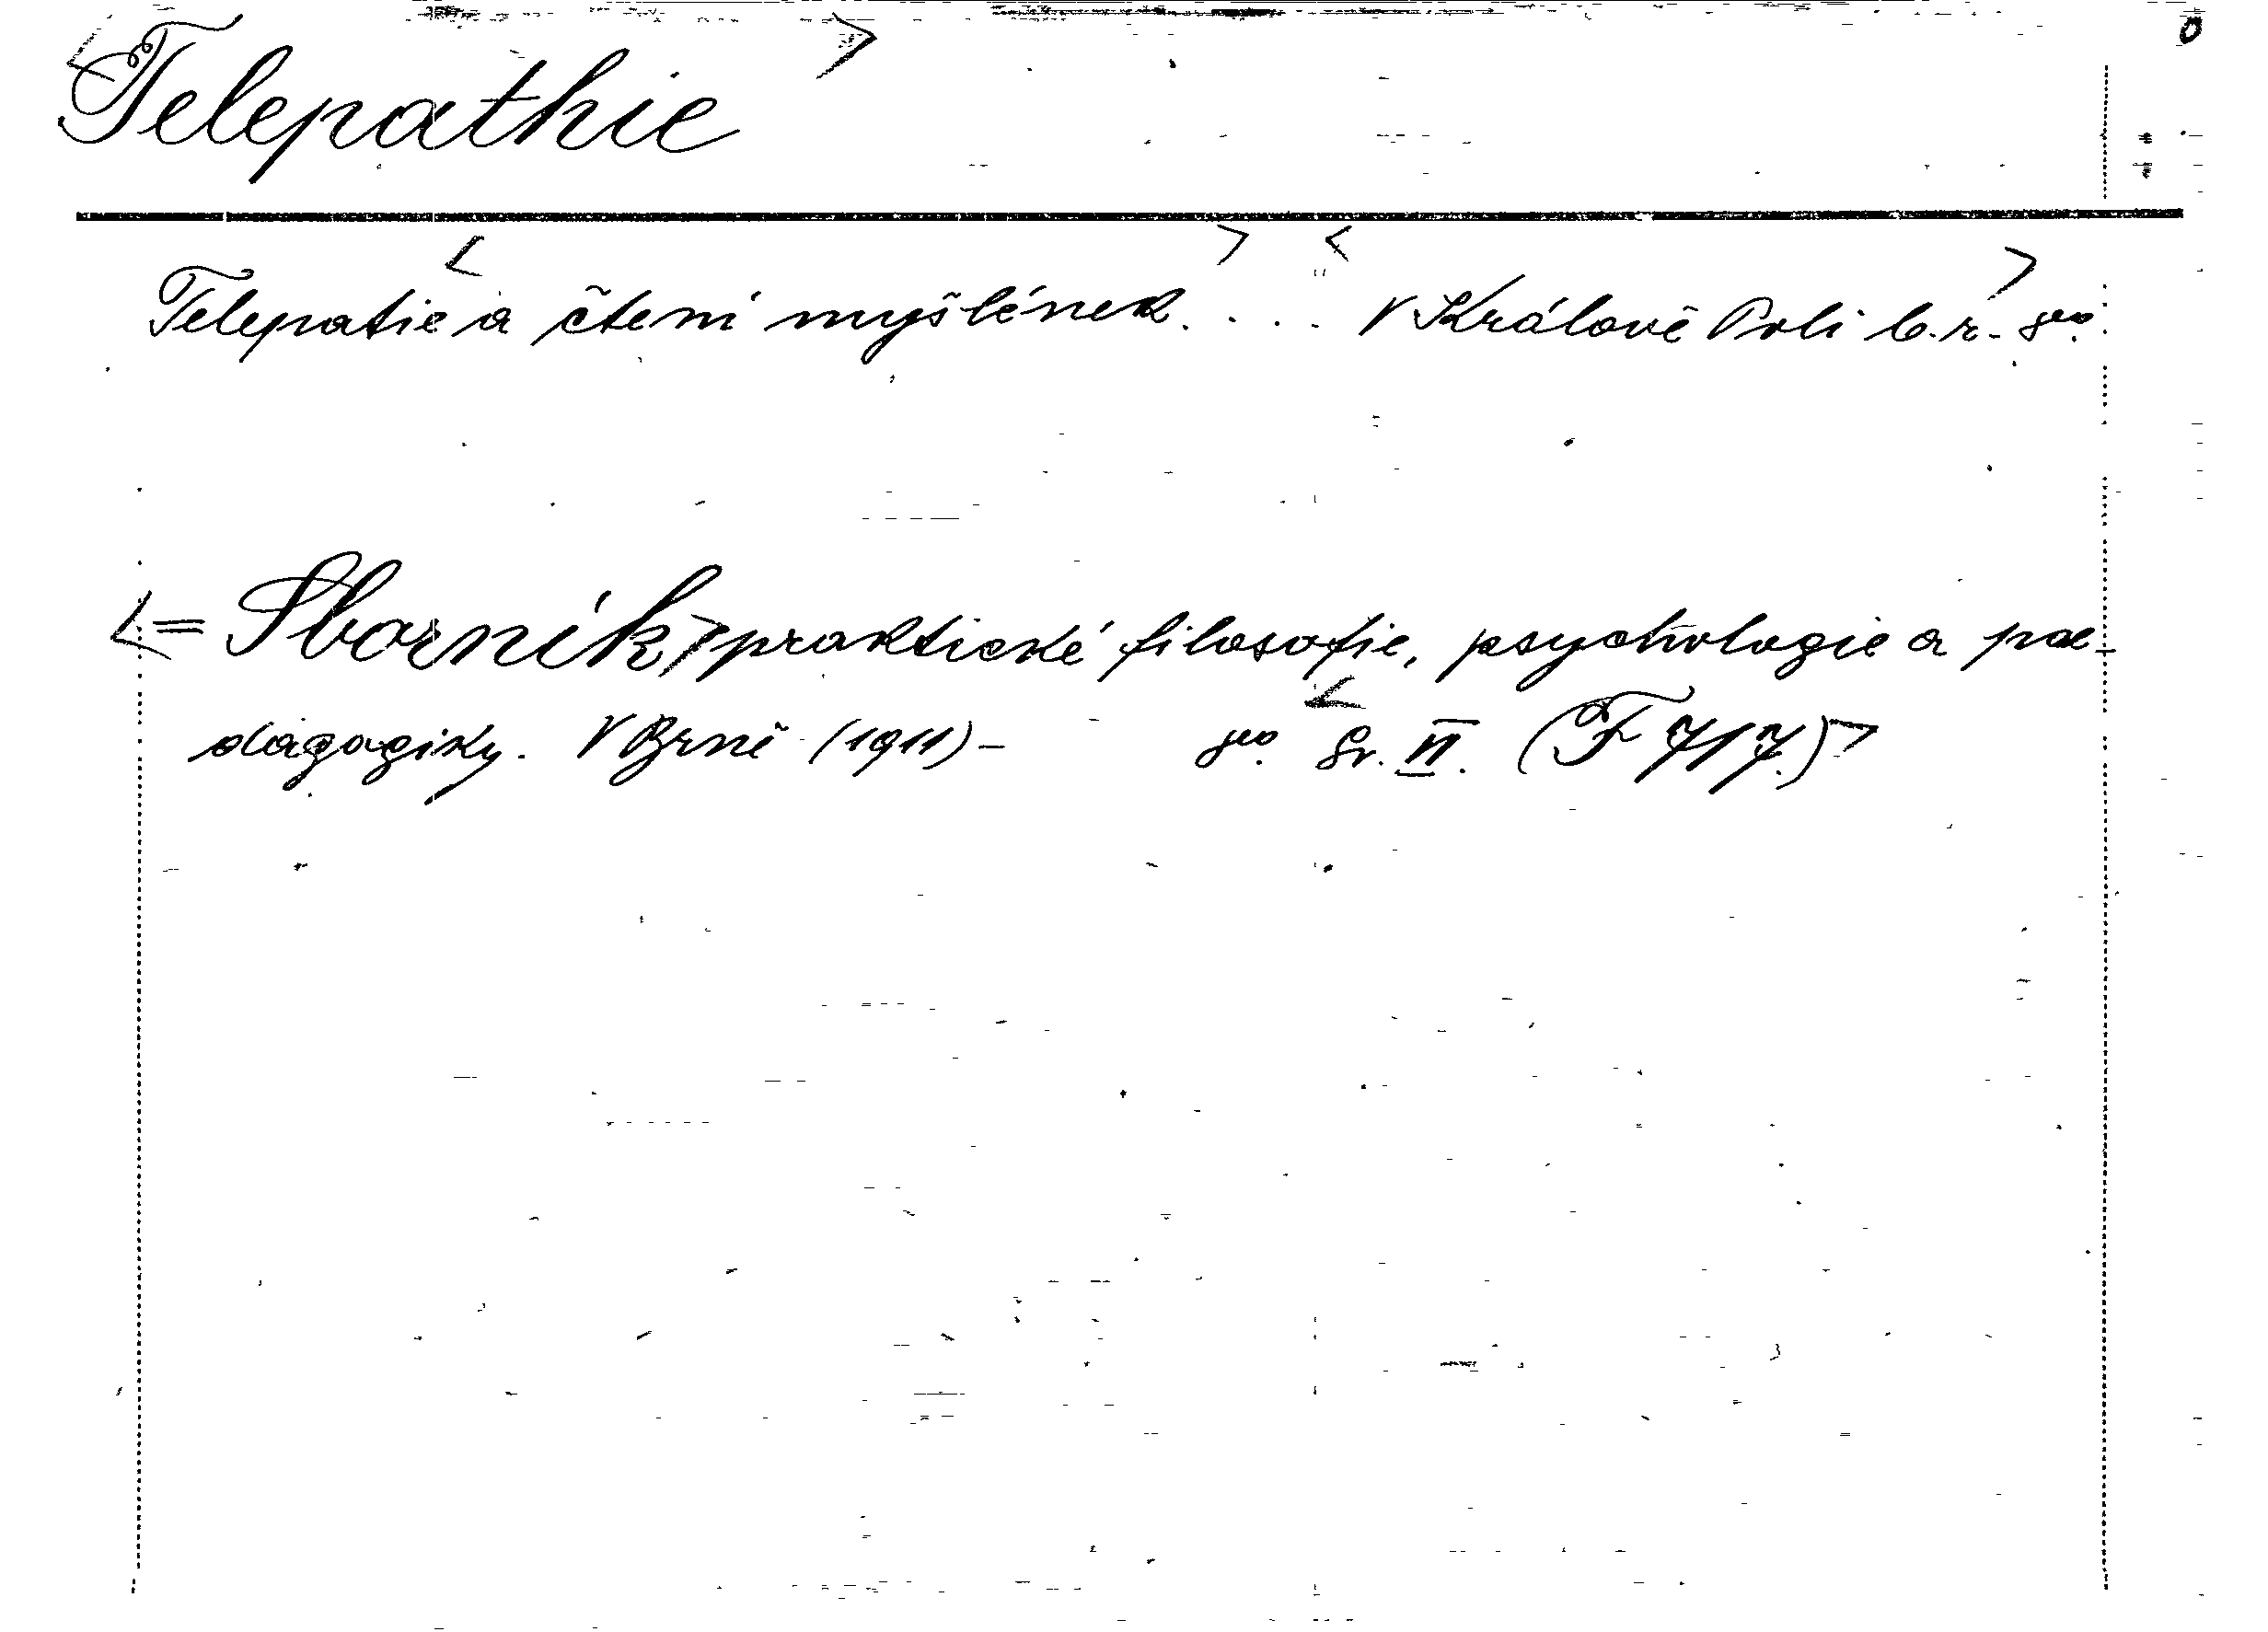 Telepathie
Telepatie a čtení myšlének.... V Králově Poli b.r. 8vo.
= Sborník praktické filosofie, psychologie a pae-
dagogiky. V Brně (1911) - 8vo. Sv. VI. (F 717.)